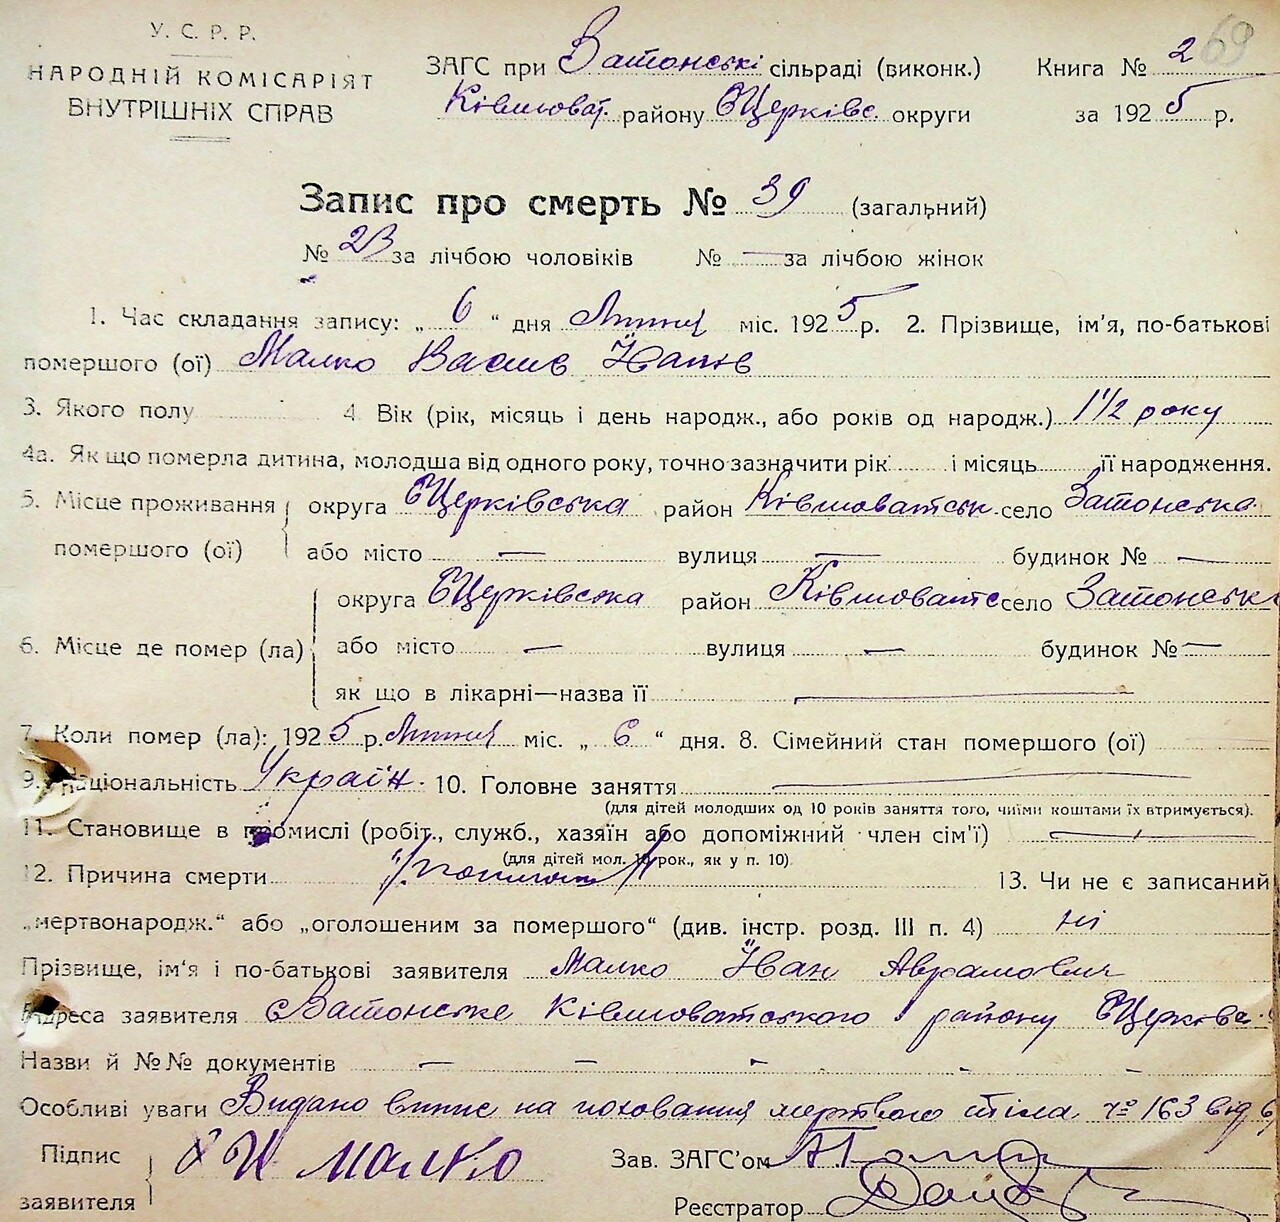 У. С. Р. Р.
НАРОДНІЙ КОМІСАРІЯТ
ВНУТРІШНІХ СПРАВ
ЗАГС при Затонські сільраді (виконк.) Книга № 2 69
Ківшоват. району БЦерківс. округи за 1925 р.
Запис про смерть № 39 (загальний)
№ 23 за лічбою чоловіків № — за лічбою жінок
1. Час складання запису: „ 6 “ дня Липня міс. 1925 р. 2. Прізвище, ім'я, по-батькові
помершого (ої) Малко Василь
3. Якого полу 4. Вік (рік, місяць і день народж., або років од народж.) 1 1/2 року
4а. Як що померла дитина, молодша від одного року, точно зазначити рік і місяць її народження.
5. Місце проживання округа БЦерківська район Ківшоватськ. село Затонська
помершого (ої) або місто — вулиця — будинок № —
округа БЦерківська район Ківшоватс село Затонськ
6. Місце де помер (ла) або місто — вулиця — будинок № —
як що в лікарні—назва її —
7. Коли помер (ла): 1925 р. Липня міс. „ 6 “ дня. 8. Сімейний стан помершого (ої)
9. Національність Україн. 10. Головне заняття —
(для дітей молодших од 10 років заняття того, чиїми коштами їх втримується).
11. Становище в промислі (робіт., служб., хазяїн або допоміжний член сім'ї) —
(для дітей мол. 10 рок., як у п. 10)
12. Причина смерти 13. Чи не є записаний
„мертвонародж.“ або „оголошеним за помершого“ (див. інстр. розд. III п. 4) ні
Прізвище, ім'я і по-батькові заявителя Малко Іван Аврамович
Адреса заявителя Затонське Ківшоватського району БЦерківс.
Назви й №№ документів — — - - -
Особливі уваги Видано випис на поховання мертвого тіла № 163 від 6/
Підпис И Малко Зав. ЗАГС'ом
заявителя Реєстратор